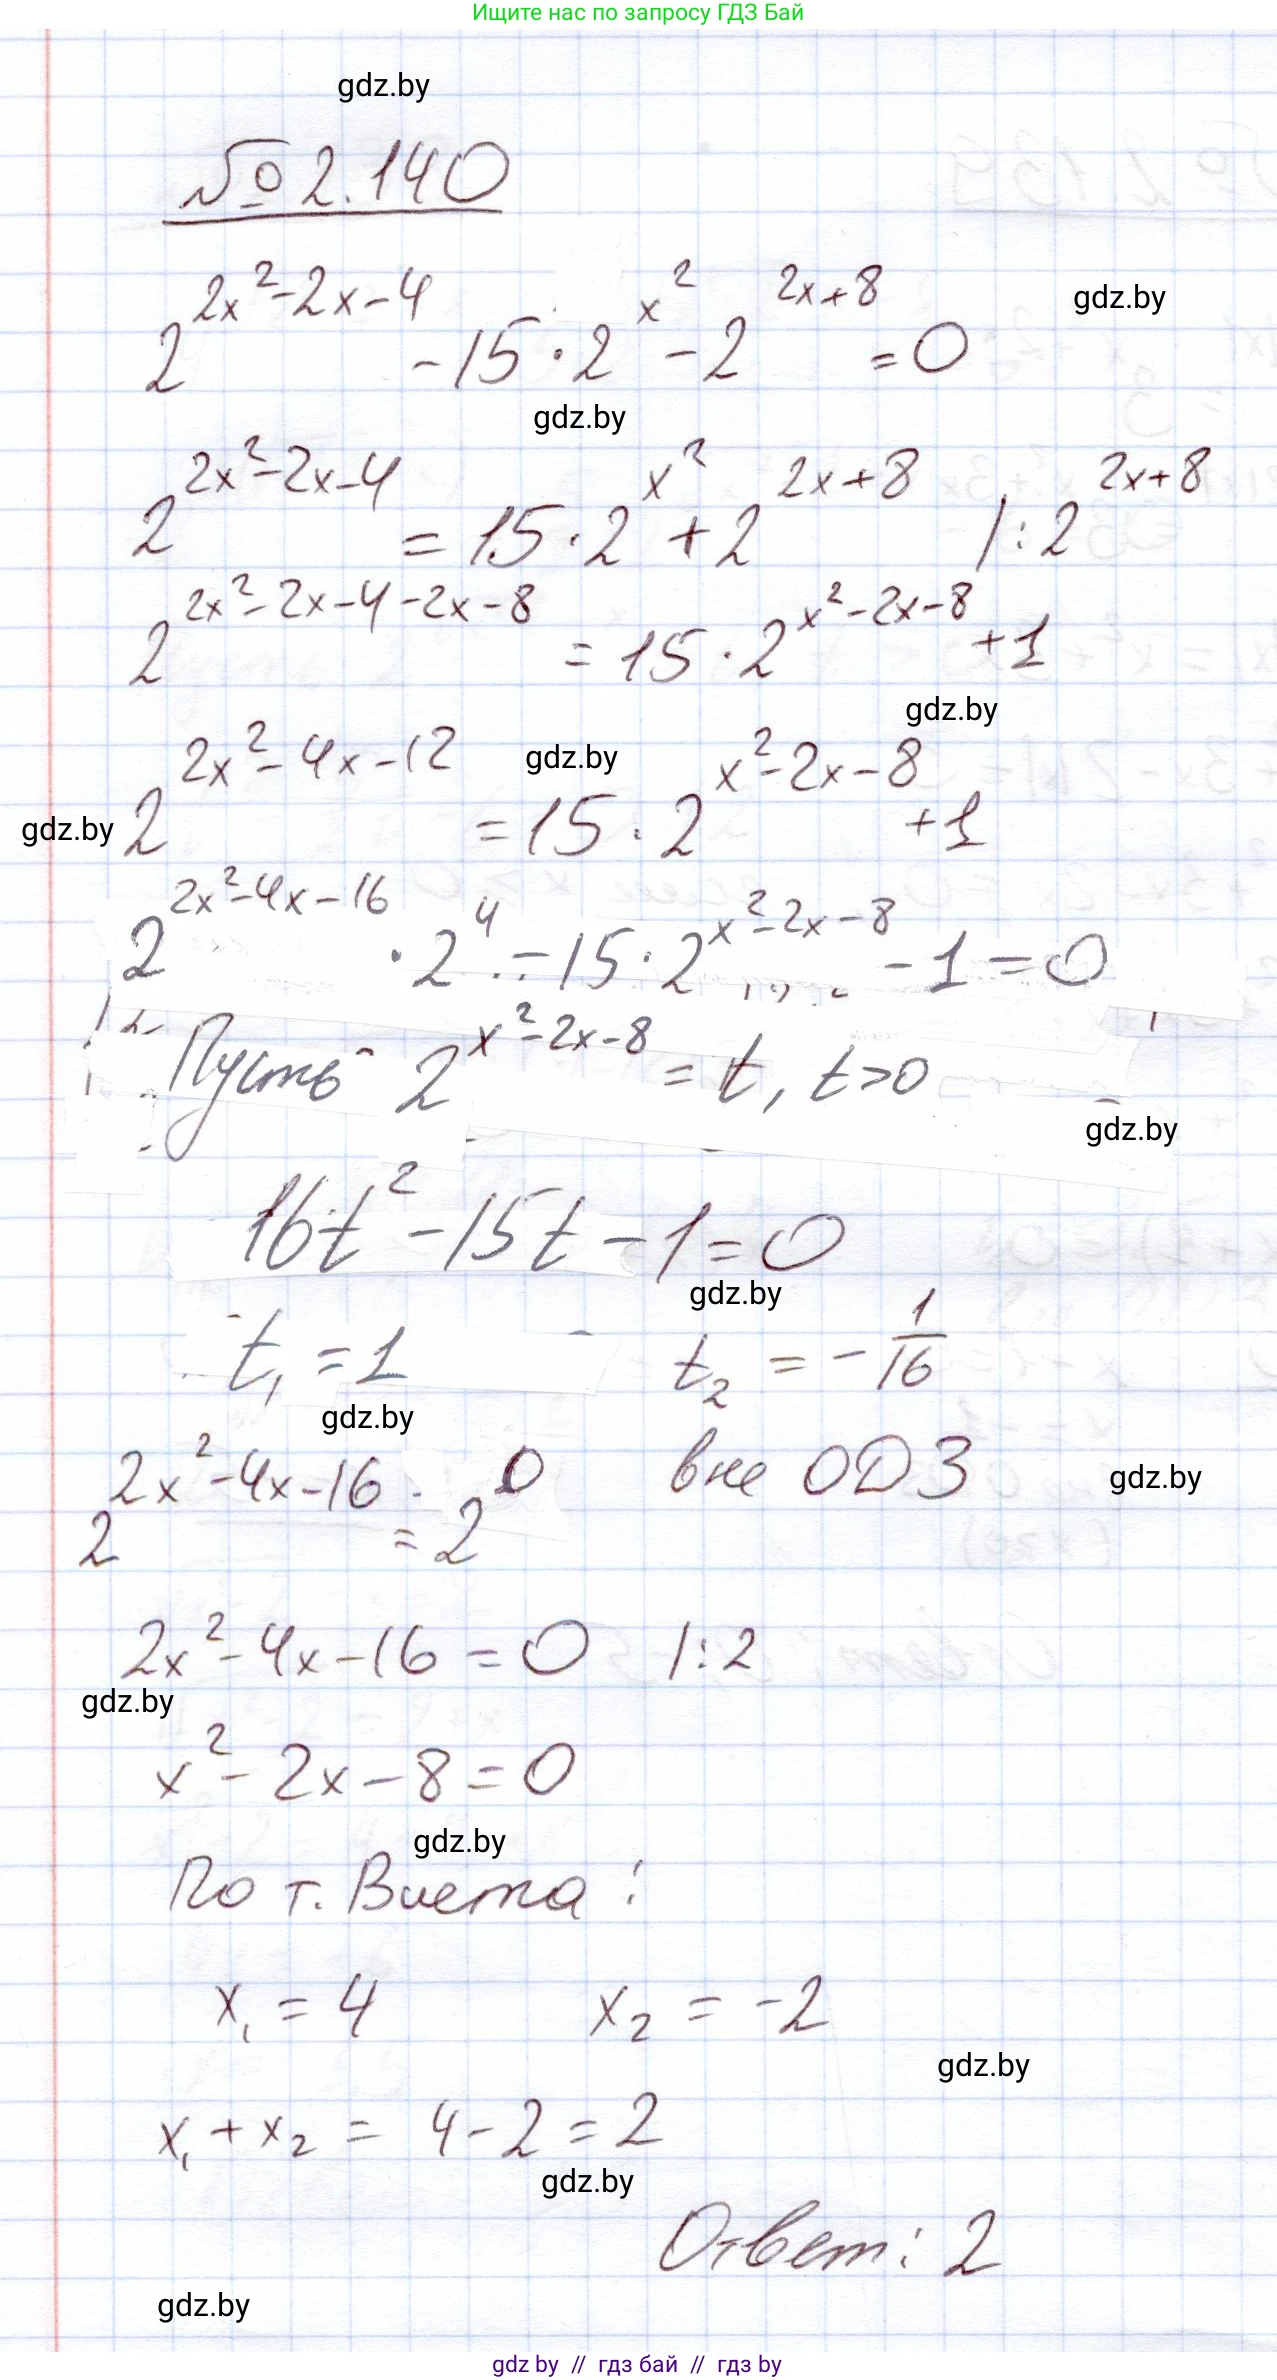 Ищите нас по запросу ГДЗ Бай
gdz.by
№ 2.140
2^{2x²-2x-4} - 15 · 2^{x²} - 2^{2x+8} = 0
gdz.by
gdz.by
2^{2x²-2x-4} = 15 · 2^{x²} + 2^{2x+8} /: 2^{2x+8}
2^{2x²-2x-4-2x-8} = 15 · 2^{x²-2x-8} + 1
gdz.by
gdz.by
2^{2x²-4x-12} = 15 · 2^{x²-2x-8} + 1
gdz.by
2^{2x²-4x-16} · 2^4 - 15 · 2^{x²-2x-8} - 1 = 0
Пусть 2^{x²-2x-8} = t, t > 0
gdz.by
16t² - 15t - 1 = 0
gdz.by
t₁ = 1 t₂ = -1/16
gdz.by
2^{2x²-4x-16} = 2^0 вне ОДЗ
gdz.by
2x² - 4x - 16 = 0 /: 2
gdz.by
x² - 2x - 8 = 0
gdz.by
По т. Виета:
x₁ = 4 x₂ = -2
gdz.by
x₁ + x₂ = 4 - 2 = 2
gdz.by
Ответ: 2
gdz.by
gdz by // гдз бай // гдз by